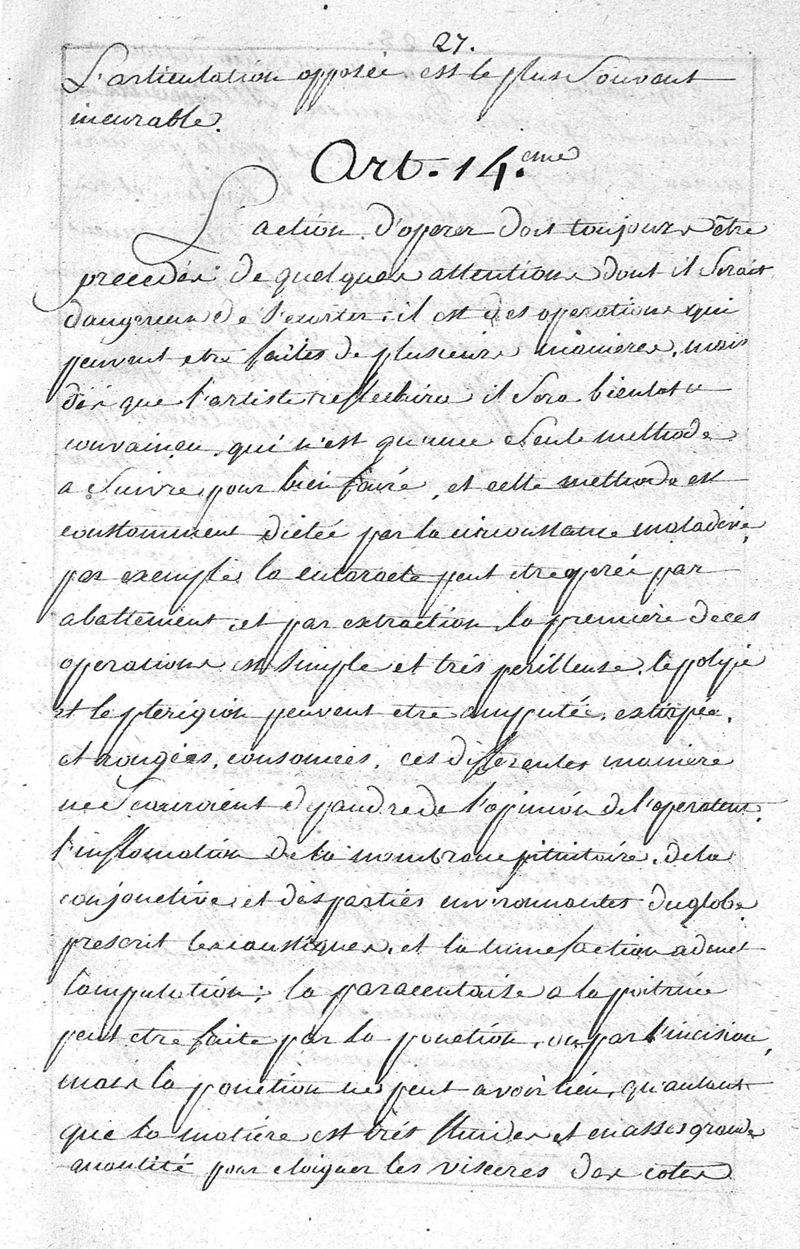 27.
L'articulation opposée est le plus souvent
incurable.
Art. 14.eme
L'action d'operer doit toujours être
precedée de quelques attentions dont il serait
dangereux de s'ecarter, il est des operations qui
peuvent etre faites de plusieurs manieres, mais
dès que l'artiste reflechira il sera bientot
convaincu, qui n'est qu'une seule methode
a suivre pour bien faire, et cette methode est
constamment dictée par la circonstance maladive,
par exemple, la cataracte peut etre operée par
abattement, et par extraction, la premiere de ces
operations est simple et très perilleuse, le polype
et le pterigion peuvent etre amputée, extirpée,
et rongées, consomées, ces differentes maniere
ne scauroient dependre de l'opinion de l'operateur.
l'inflamation de la membrane pituitaire, de la
conjonctive, et des parties environnantes du globe,
prescrit les caustiques, et la tumefaction admet
l'amputation; la paracentaise a la poitrine
peut etre faite par la ponction, ou par l'incision,
mais la ponction ne peut avoir lieu, qu'autant
que la matière est très fluide et en asses grande
quantité pour eloigner les visceres des cotes